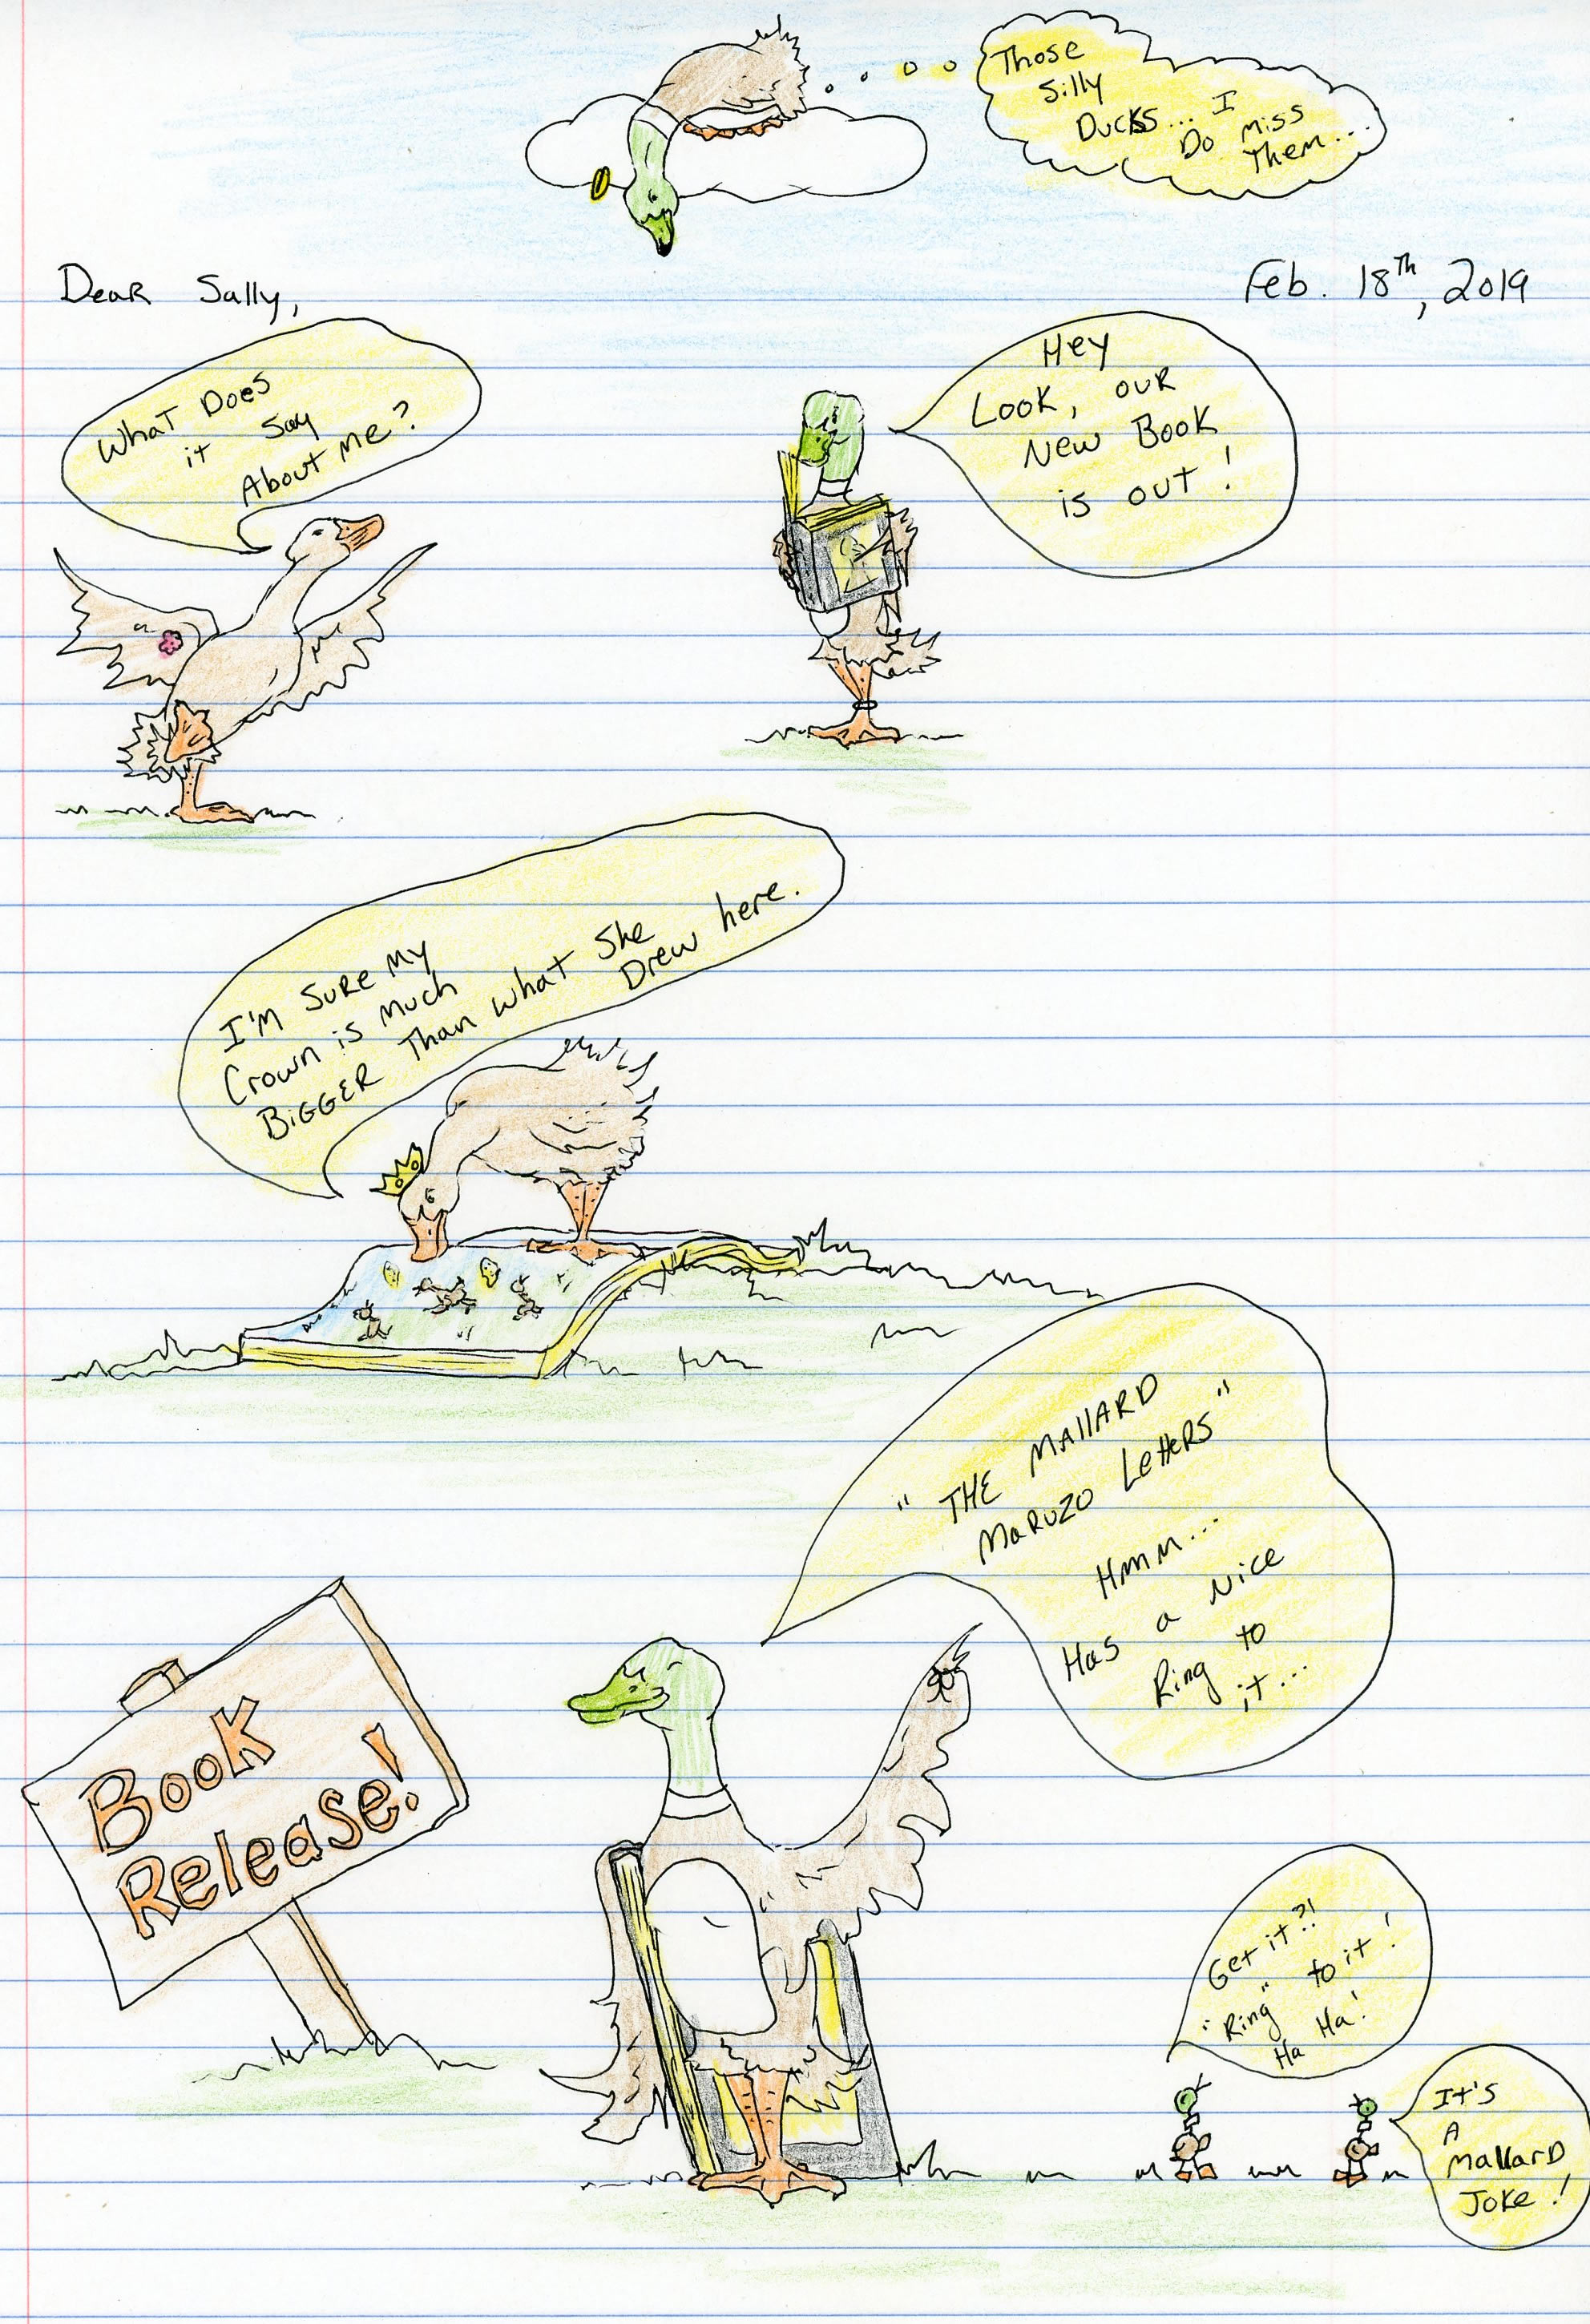 Those
Silly
Ducks... I
Do miss
Them...
Dear Sally,
Feb. 18th, 2019
What Does
it Say
About Me?
Hey
Look, our
New Book
is out!
I'm Sure My
Crown is Much
BiGGER Than what She
Drew here.
"THE MAllARD
MaRUZO LetteRS"
Hmm...
Has a Nice
Ring to
it...
Book
Release!
Get it?!
"Ring" to it!
Ha Ha!
It's
A
MallarD
Joke!